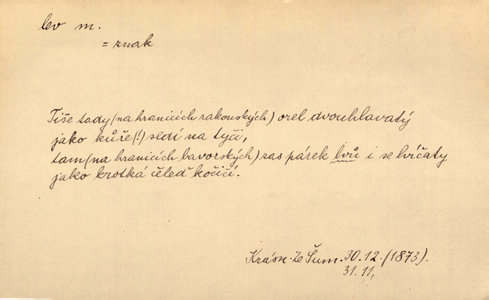 lev m.
= znak
Tiše tady (na hranicích rakouských) orel dvouhlavatý
jako kůře (!) sedí na tyči,
tam (na hranicích bavorských) zas párek lvů i se lvíčaty
jako krotká čeleď kočičí.
Krásn. Ze Šum. 30.12. (1873).
31.11,